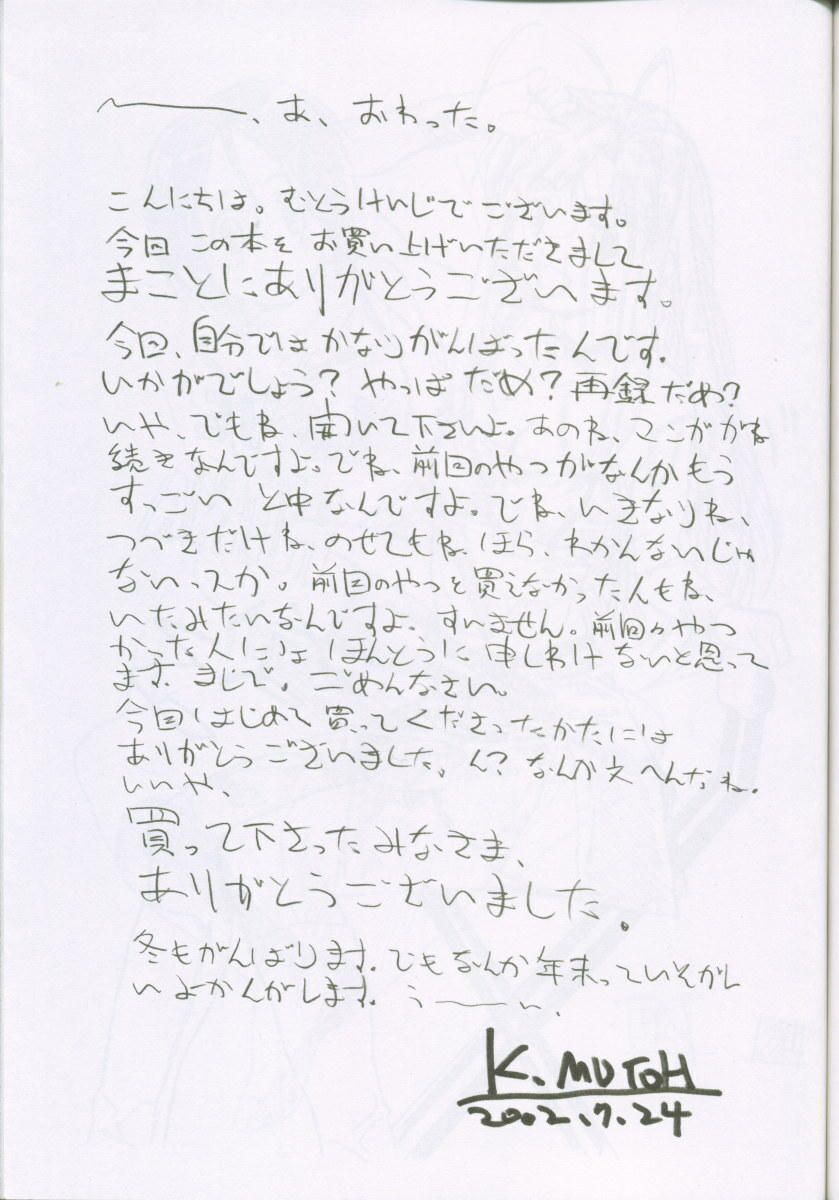 〜――、あ、おわった。
こんにちは。むとうけいじでございます。
今回この本をお買い上げいただきまして
まことにありがとうございます。
今回、自分ではかなりがんばったんです。
いかがでしょう?やっぱだめ?再録だめ?
いや、でもね、聞いて下さいよ。あのね、マンガがね
続きなんですよ。でね、前回のやつがなんかもう
すっごいと中なんですよ。でね、いきなりね、
つづきだけね、のせてもね、ほら、わかんないじゃ
ないっスか。前回のやつを買えなかった人もね、
いたみたいなんですよ、すいません。前回のやつ
かった人にはほんとうに申しわけないと思って
ます。まじで。ごめんなさい。
今回はじめて買ってくださったかたには
ありがとうございました。ん?なんか文へんだね。
いいや、
買って下さったみなさま、
ありがとうございました。
冬もがんばります。でもなんか年末っていそがし
いよかんがします。う――い、
K. MUTOH
2002.7.24